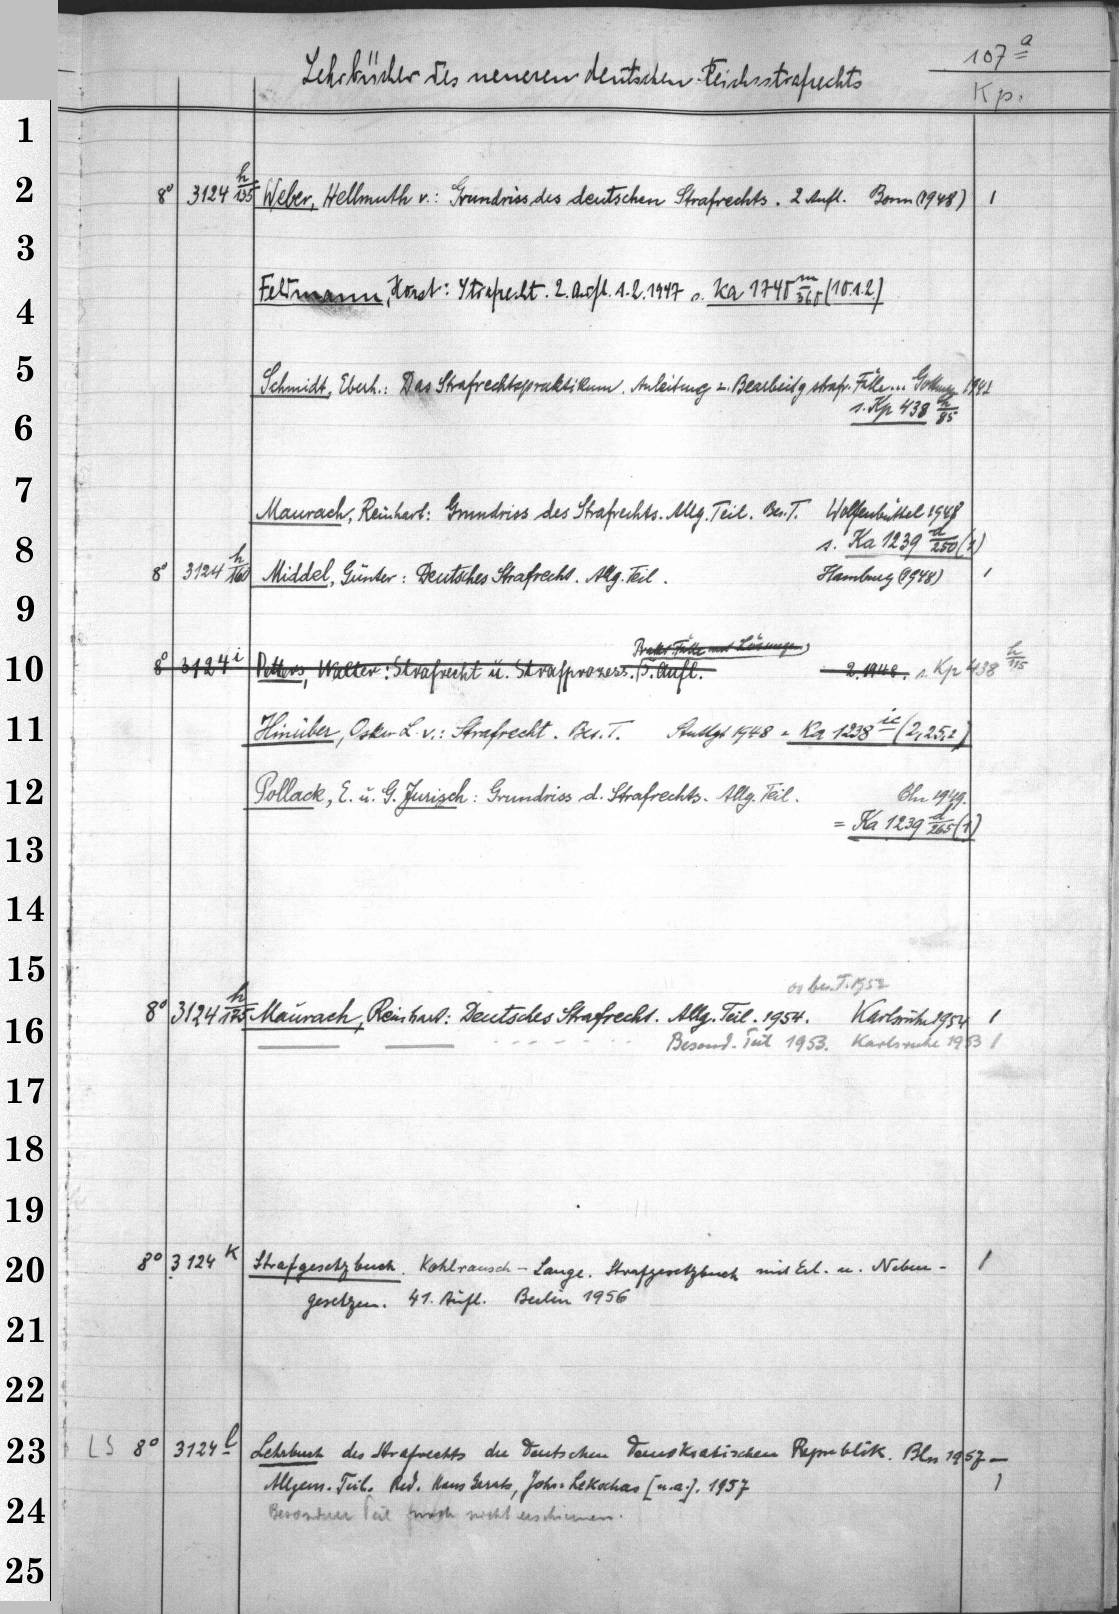 107 a
Lehrbücher des neueren deutschen Reichsstrafrechts
Kp.
1
2 8° 3124 h/155 Weber, Hellmuth v.: Grundriss des deutschen Strafrechts. 2 Aufl. Bonn (1948) 1
3
4 Feldmann, Horst: Strafrecht. 2. Aufl. 1.2. 1947 s. Ka 1745 m/560 (10.1.2)
5 Schmidt, Eberh.: Das Strafrechtspraktikum. Anleitung z. Bearbeitg strafr. Fälle...
6 s. Kp 438 h/85
7 Maurach, Reinhart: Grundriss des Strafrechts. Allg. Teil. Bes. T. Wolfenbüttel 1948
8 s. Ka 1239 d/250 (2)
8° 3124 h/160 Middel, Günter: Deutsches Strafrecht. Allg. Teil. Hamburg (1948) 1
9
Prakt. Fälle mit Lösungen
10 8° 3124 i Petters, Walter: Strafrecht u. Strafprozess. 5. Aufl. 2. 1946. s. Kp 438 h/115
11 Hinüber, Oskar L. v.: Strafrecht. Bes. T. Stuttgt 1948 = Ka 1238 ic (2,25,2)
12 Pollack, E. u. G. Jurisch: Grundriss d. Strafrechts. Allg. Teil. Bln 1949.
= Ka 1239 d/265 (1)
13
14
15
bes. T. 1952
16 8° 3124 h/175 Maurach, Reinhart: Deutsches Strafrecht. Allg. Teil. 1954. Karlsruhe 1954 1
Besond. Teil 1953. Karlsruhe 1953 1
17
18
19
20 8° 3124 k Strafgesetzbuch. Kohlrausch-Lange. Strafgesetzbuch mit Erl. u. Neben- 1
gesetzen. 41. Aufl. Berlin 1956
21
22
23 LS 8° 3124 l Lehrbuch des Strafrechts der Deutschen Demokratischen Republik. Bln 1957 –
Allgem. Teil. Red. Hans Gerats, John Lekschas [u.a.]. 1957 1
24 Besonderer Teil noch nicht erschienen.
25